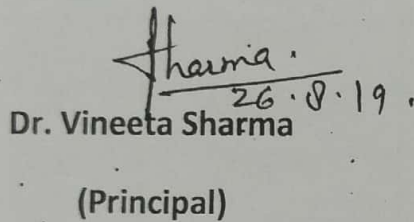 Sharma.
26.8.19.
Dr. Vineeta Sharma
(Principal)